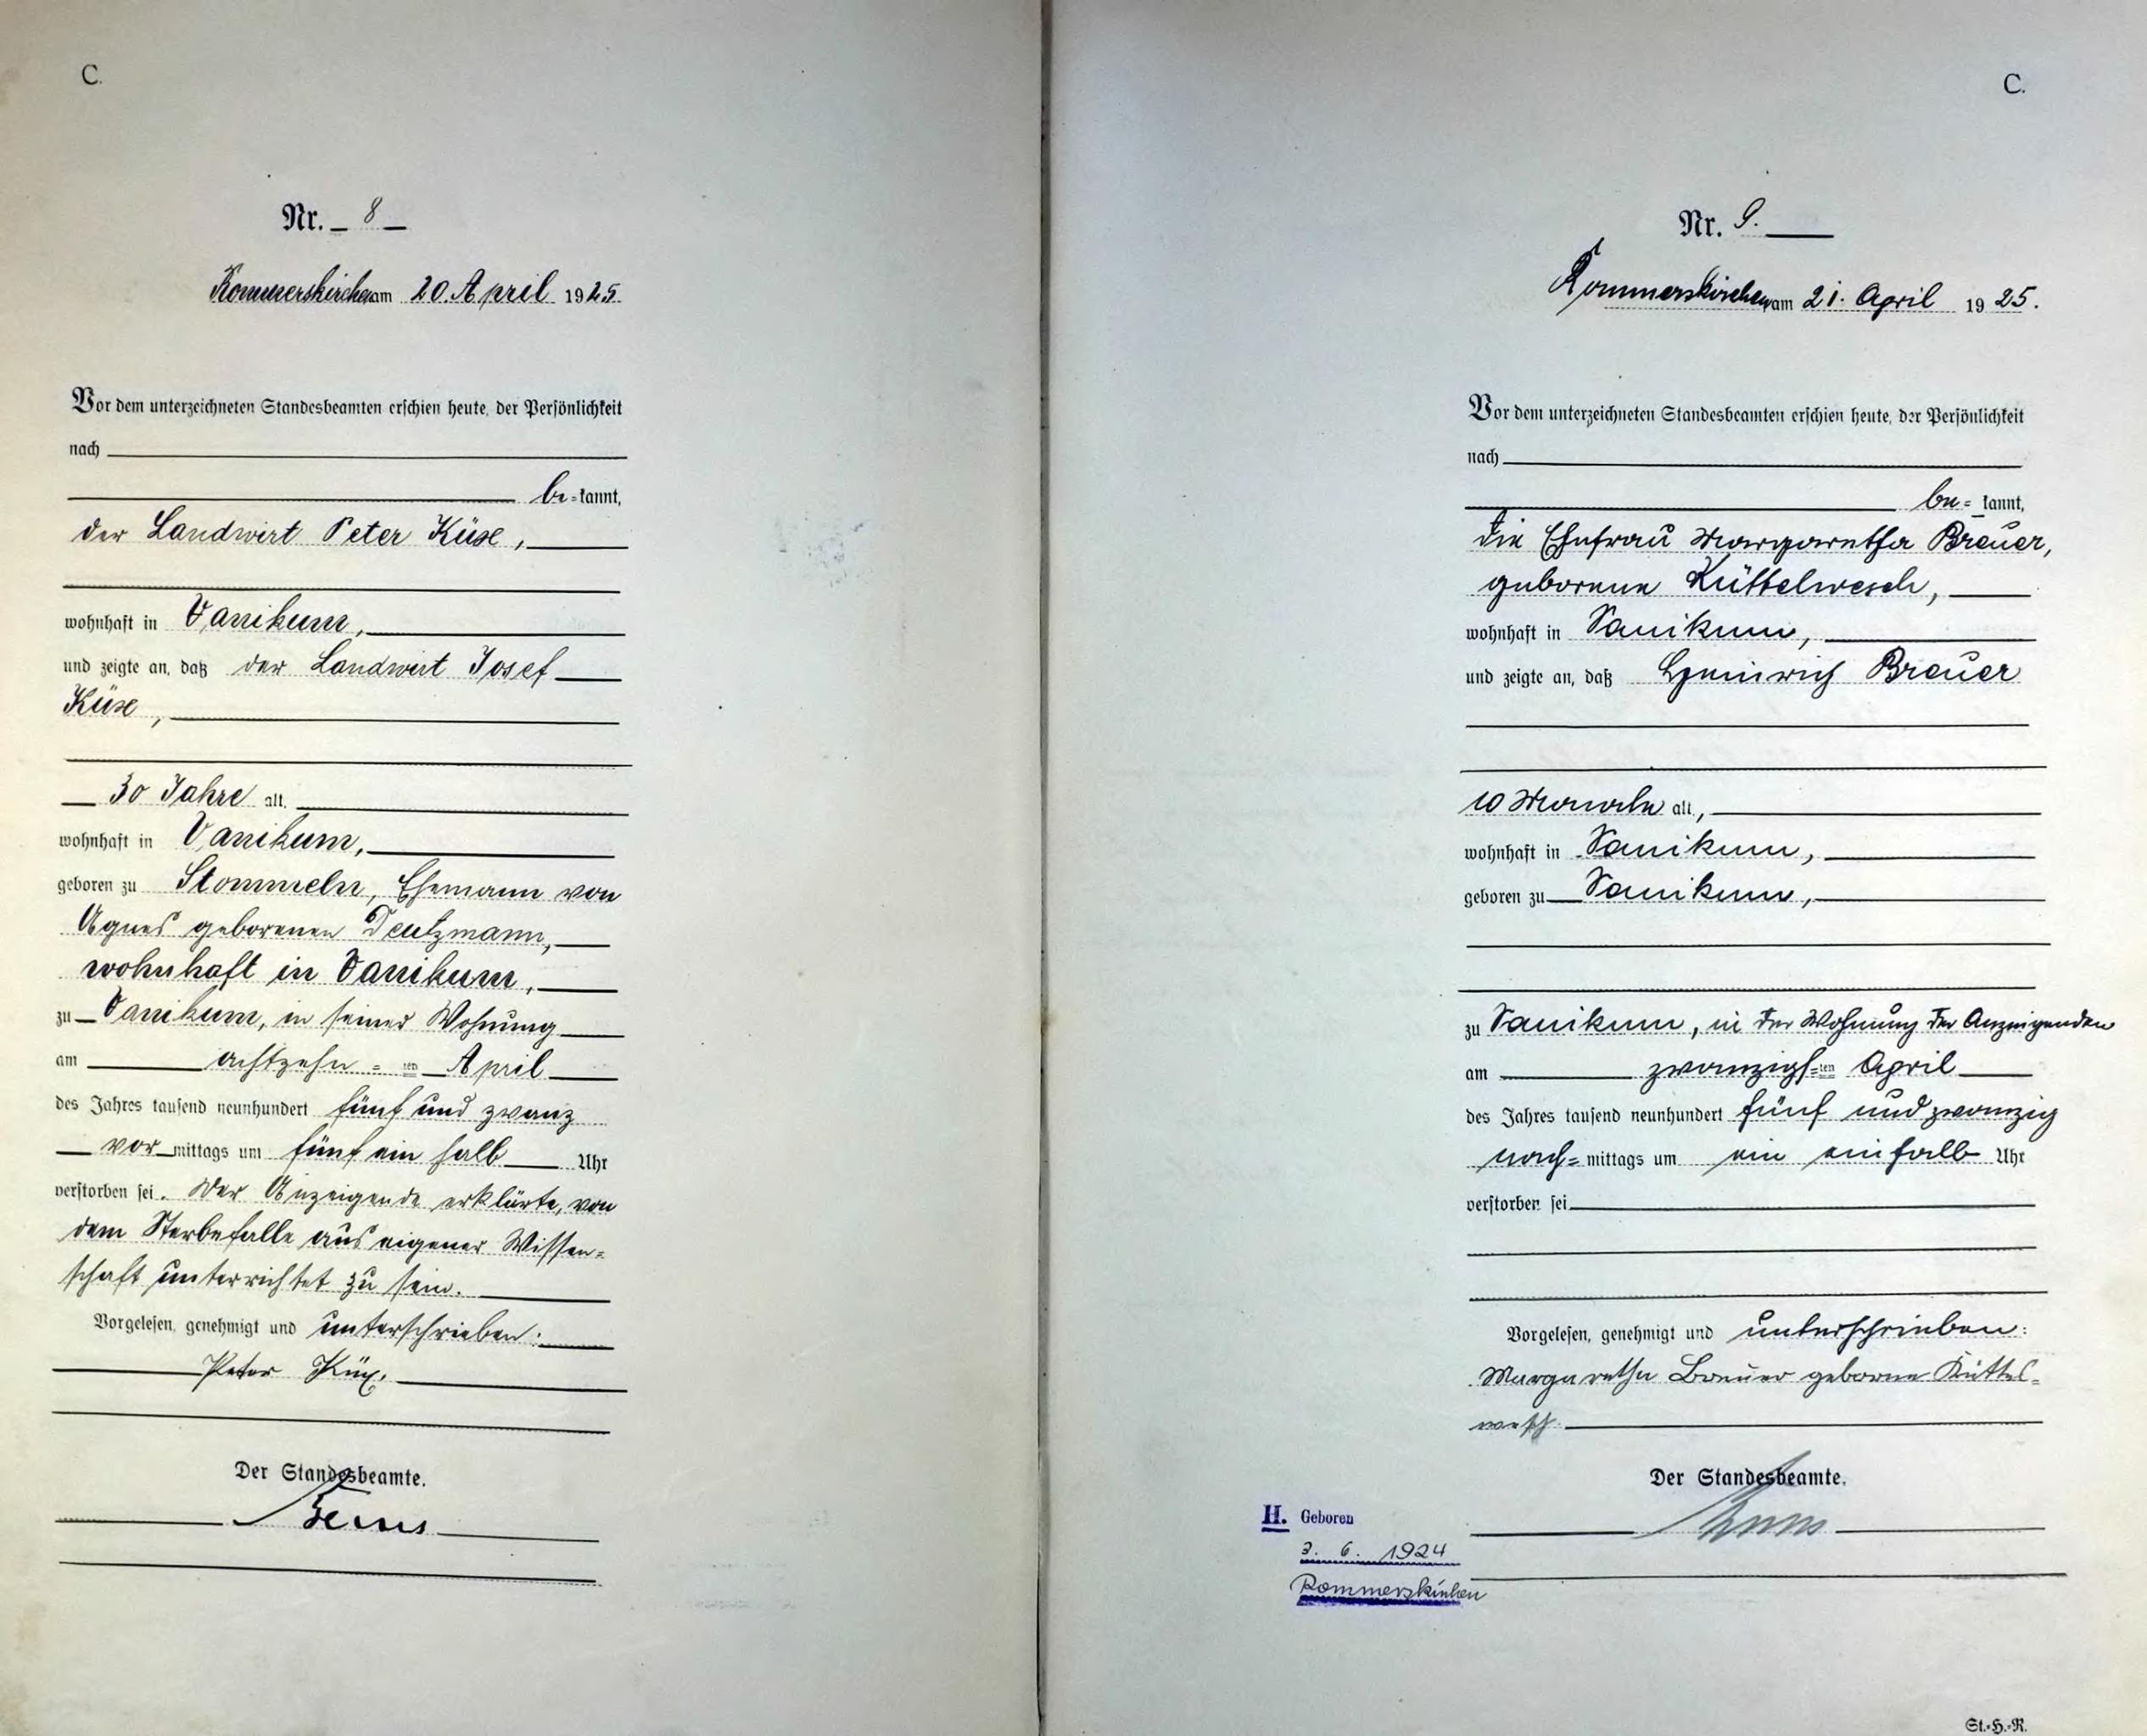 C.
Nr. 8
Rommerskirchen am 20. April 1925.
Vor dem unterzeichneten Standesbeamten erschien heute, der Persönlichkeit
nach
be=kannt,
der Landwirt Peter Küx,
wohnhaft in Vanikum,
und zeigte an, daß der Landwirt Josef
Küx,
30 Jahre alt,
wohnhaft in Vanikum,
geboren zu Stommeln, Ehemann von
Agnes geborenen Deutzmann,
wohnhaft in Vanikum,
zu Vanikum, in seiner Wohnung
am achtzehn=ten April
des Jahres tausend neunhundert fünf und zwanz
vormittags um fünf ein halb Uhr
verstorben sei. Der Anzeigende erklärte, von
dem Sterbefalle aus eigener Wissen=
schaft unterrichtet zu sein.
Vorgelesen, genehmigt und unterschrieben:
Peter Küx.
Der Standesbeamte.
C.
Nr. 9.
Rommerskirchen am 21. April 1925.
Vor dem unterzeichneten Standesbeamten erschien heute, der Persönlichkeit
nach
be=kannt,
die Ehefrau Margaretha Breuer,
geborene Küttelwesch,
wohnhaft in Vanikum,
und zeigte an, daß Heinrich Breuer
10 Monate alt,
wohnhaft in Vanikum,
geboren zu Vanikum,
zu Vanikum, in der Wohnung der Anzeigenden
am zwanzigs=ten April
des Jahres tausend neunhundert fünf und zwanzig
nach=mittags um ein einhalb Uhr
verstorben sei
Vorgelesen, genehmigt und unterschrieben:
Margaretha Breuer geborene Küttel=
wesch.
Der Standesbeamte.
H. Geboren
3. 6. 1924
Rommerskirchen
St.=H.=R.